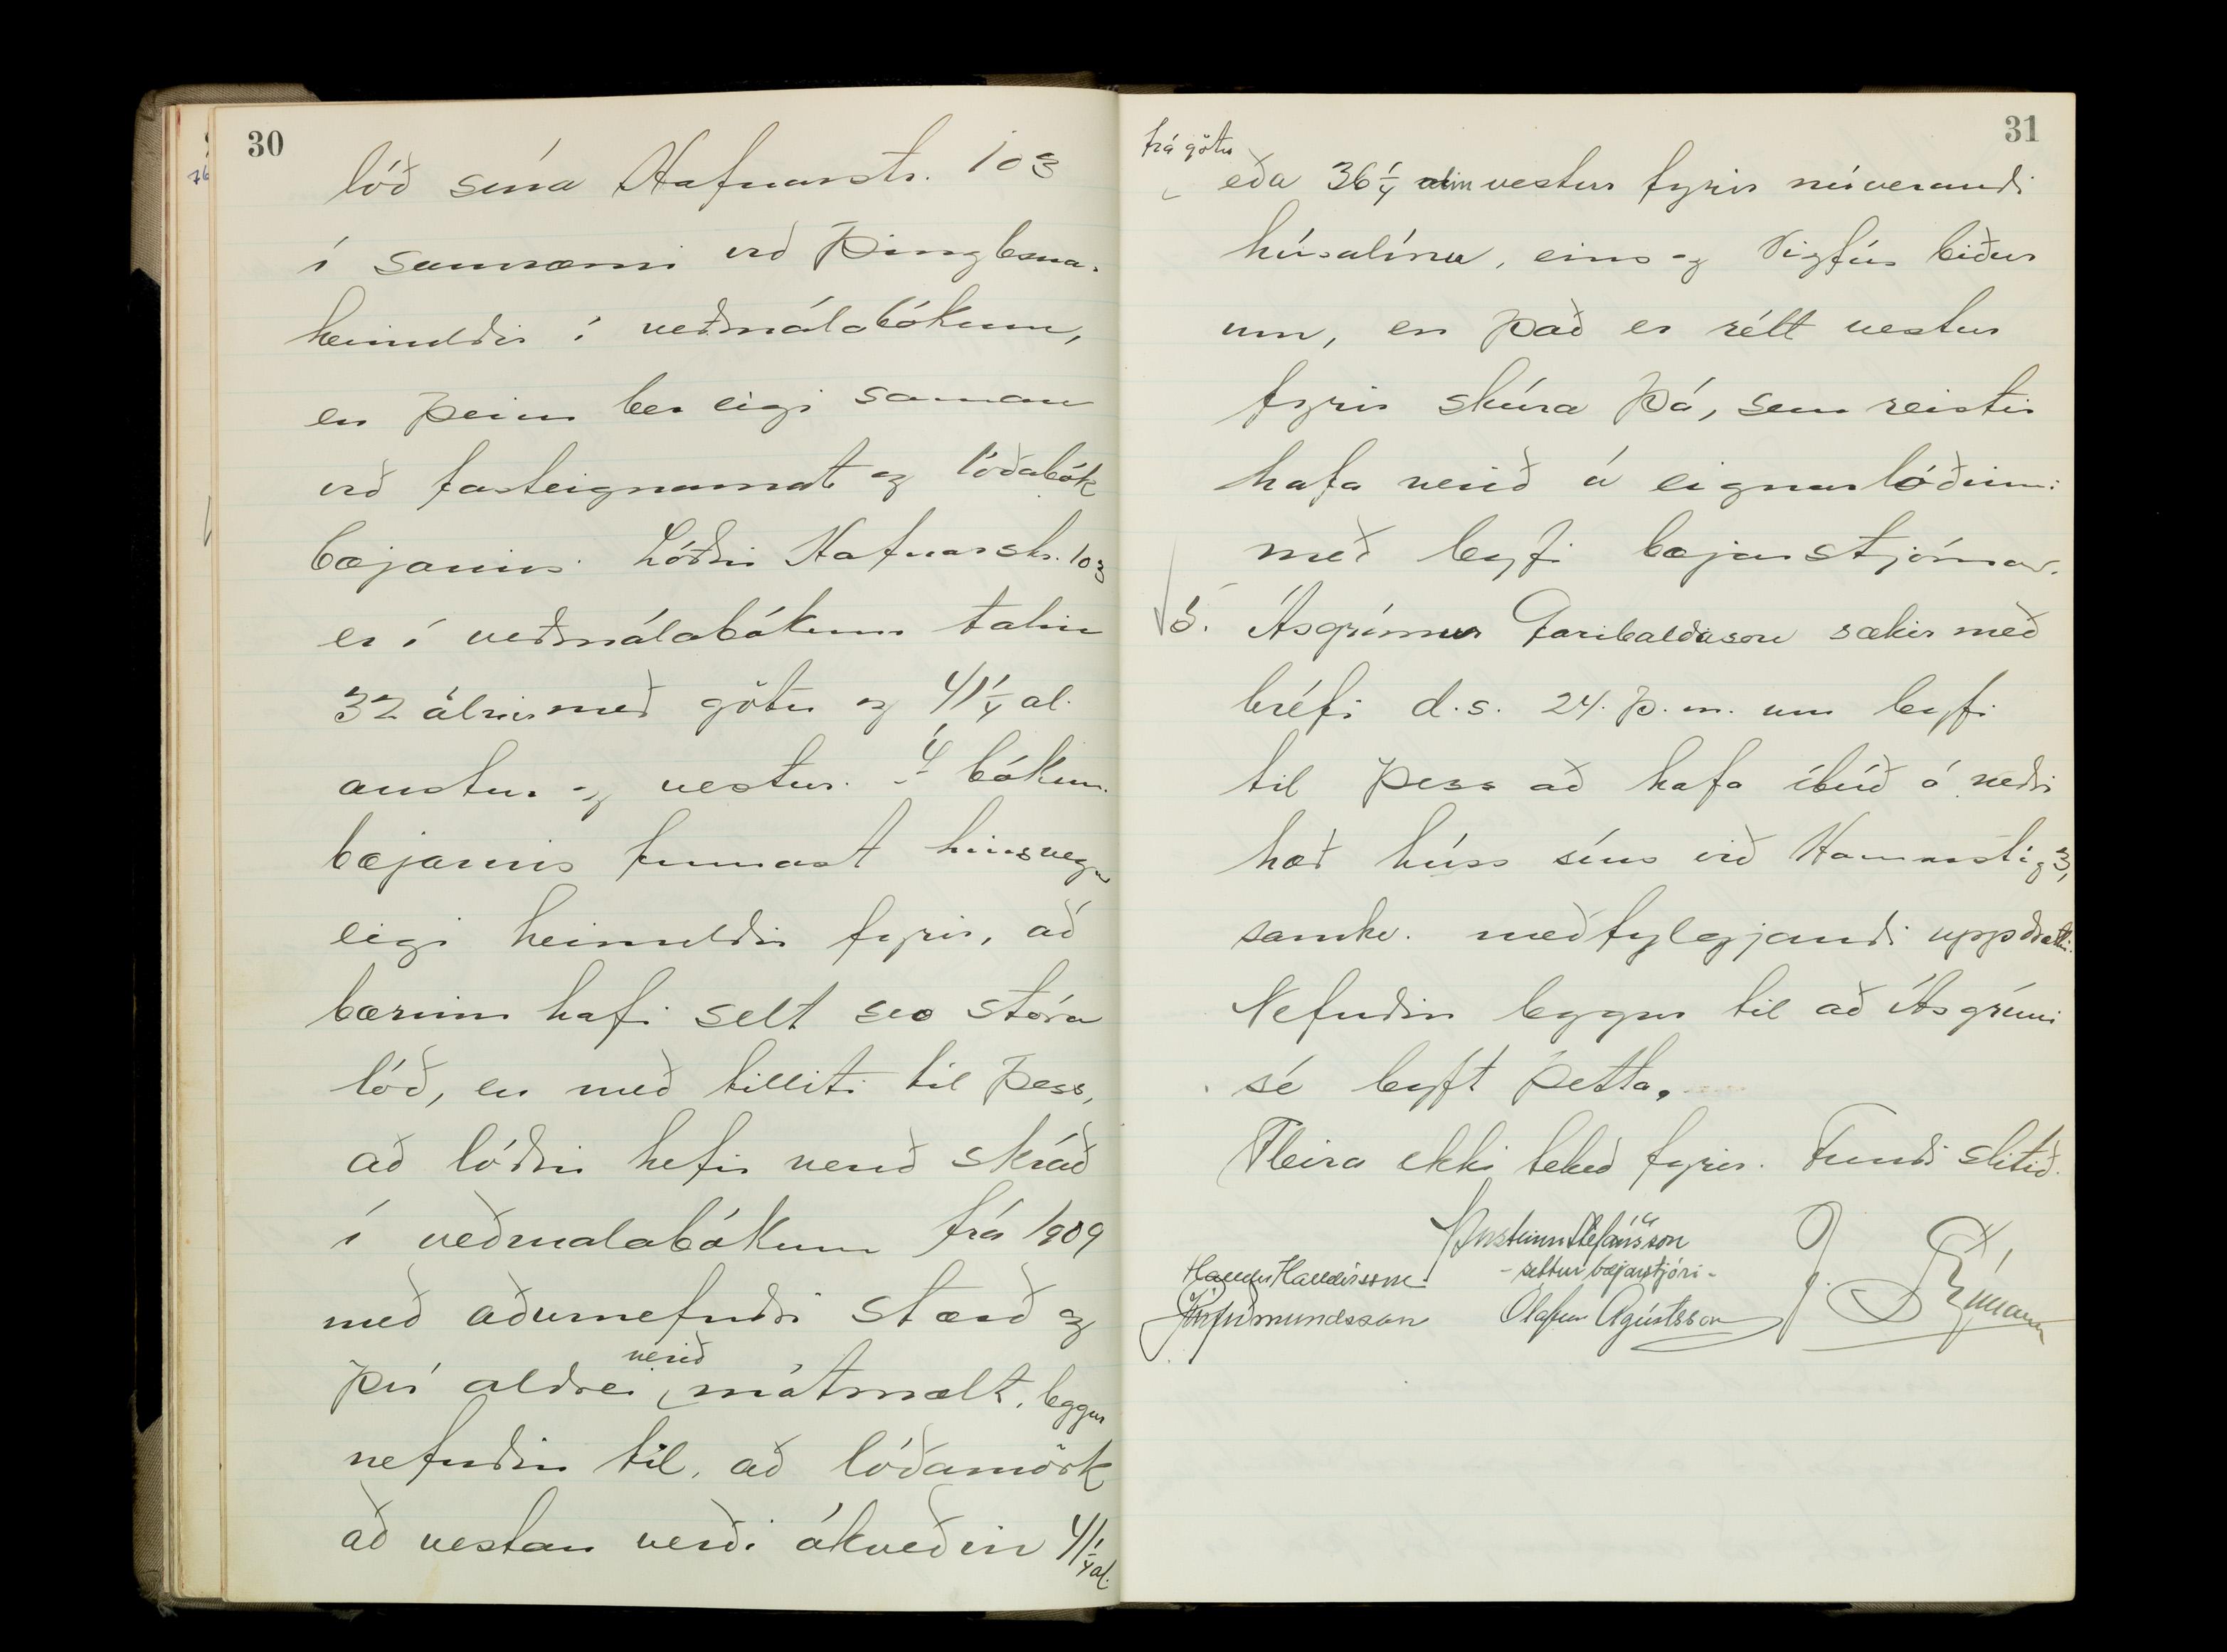 30
lóð sína Hafnarstr. 103
í samræmi við þinglesnar
heimildir í veðmálabókum,
en þeim ber eigi saman
við fasteignamat og lóðabók
bæjarins. Lóðin Hafnarstr. 103
er í veðmálabókum talin
32 álnir með götu og 41 1/4 al.
austur og vestur. Í bókum
bæjarins finnast hinsvegar
eigi heimildir fyrir, að
bærinn hafi selt svo stóra
lóð, en með tilliti til þess,
að lóðin hefir verið skráð
í veðmalabókum frá 1909
með aðurnefndri stærð og
því aldrei verið mótmælt, leggur
nefndin til, að lóðamörk
að vestan verði ákveðin 41 1/4 al.
31
frá götu
eða 36 1/4 alin vestur fyrir núverandi
húsalínu, eins og Vigfús biður
um, en það er rétt vestur
fyrir skúra þá, sem reistir
hafa verið á eignarlóðinni
með leyfi bæjarstjórnar.
5. Ásgrímur Garibaldason sækir með
bréfi d.s. 24. þ.m. um leyfi
til þess að hafa íbúð á neðri
hæð húss síns við Hamarstíg 3,
samkv. meðfylgjandi uppdrætti.
Nefndin leggur til að Ásgrími
sé leyft þetta.
Fleira ekki tekið fyrir. Fundi slitið.
Þorsteinn Stefánsson
- settur bæjarstjóri -
Halldór Halldórsson
Jón Guðmundsson Ólafur Ágústsson